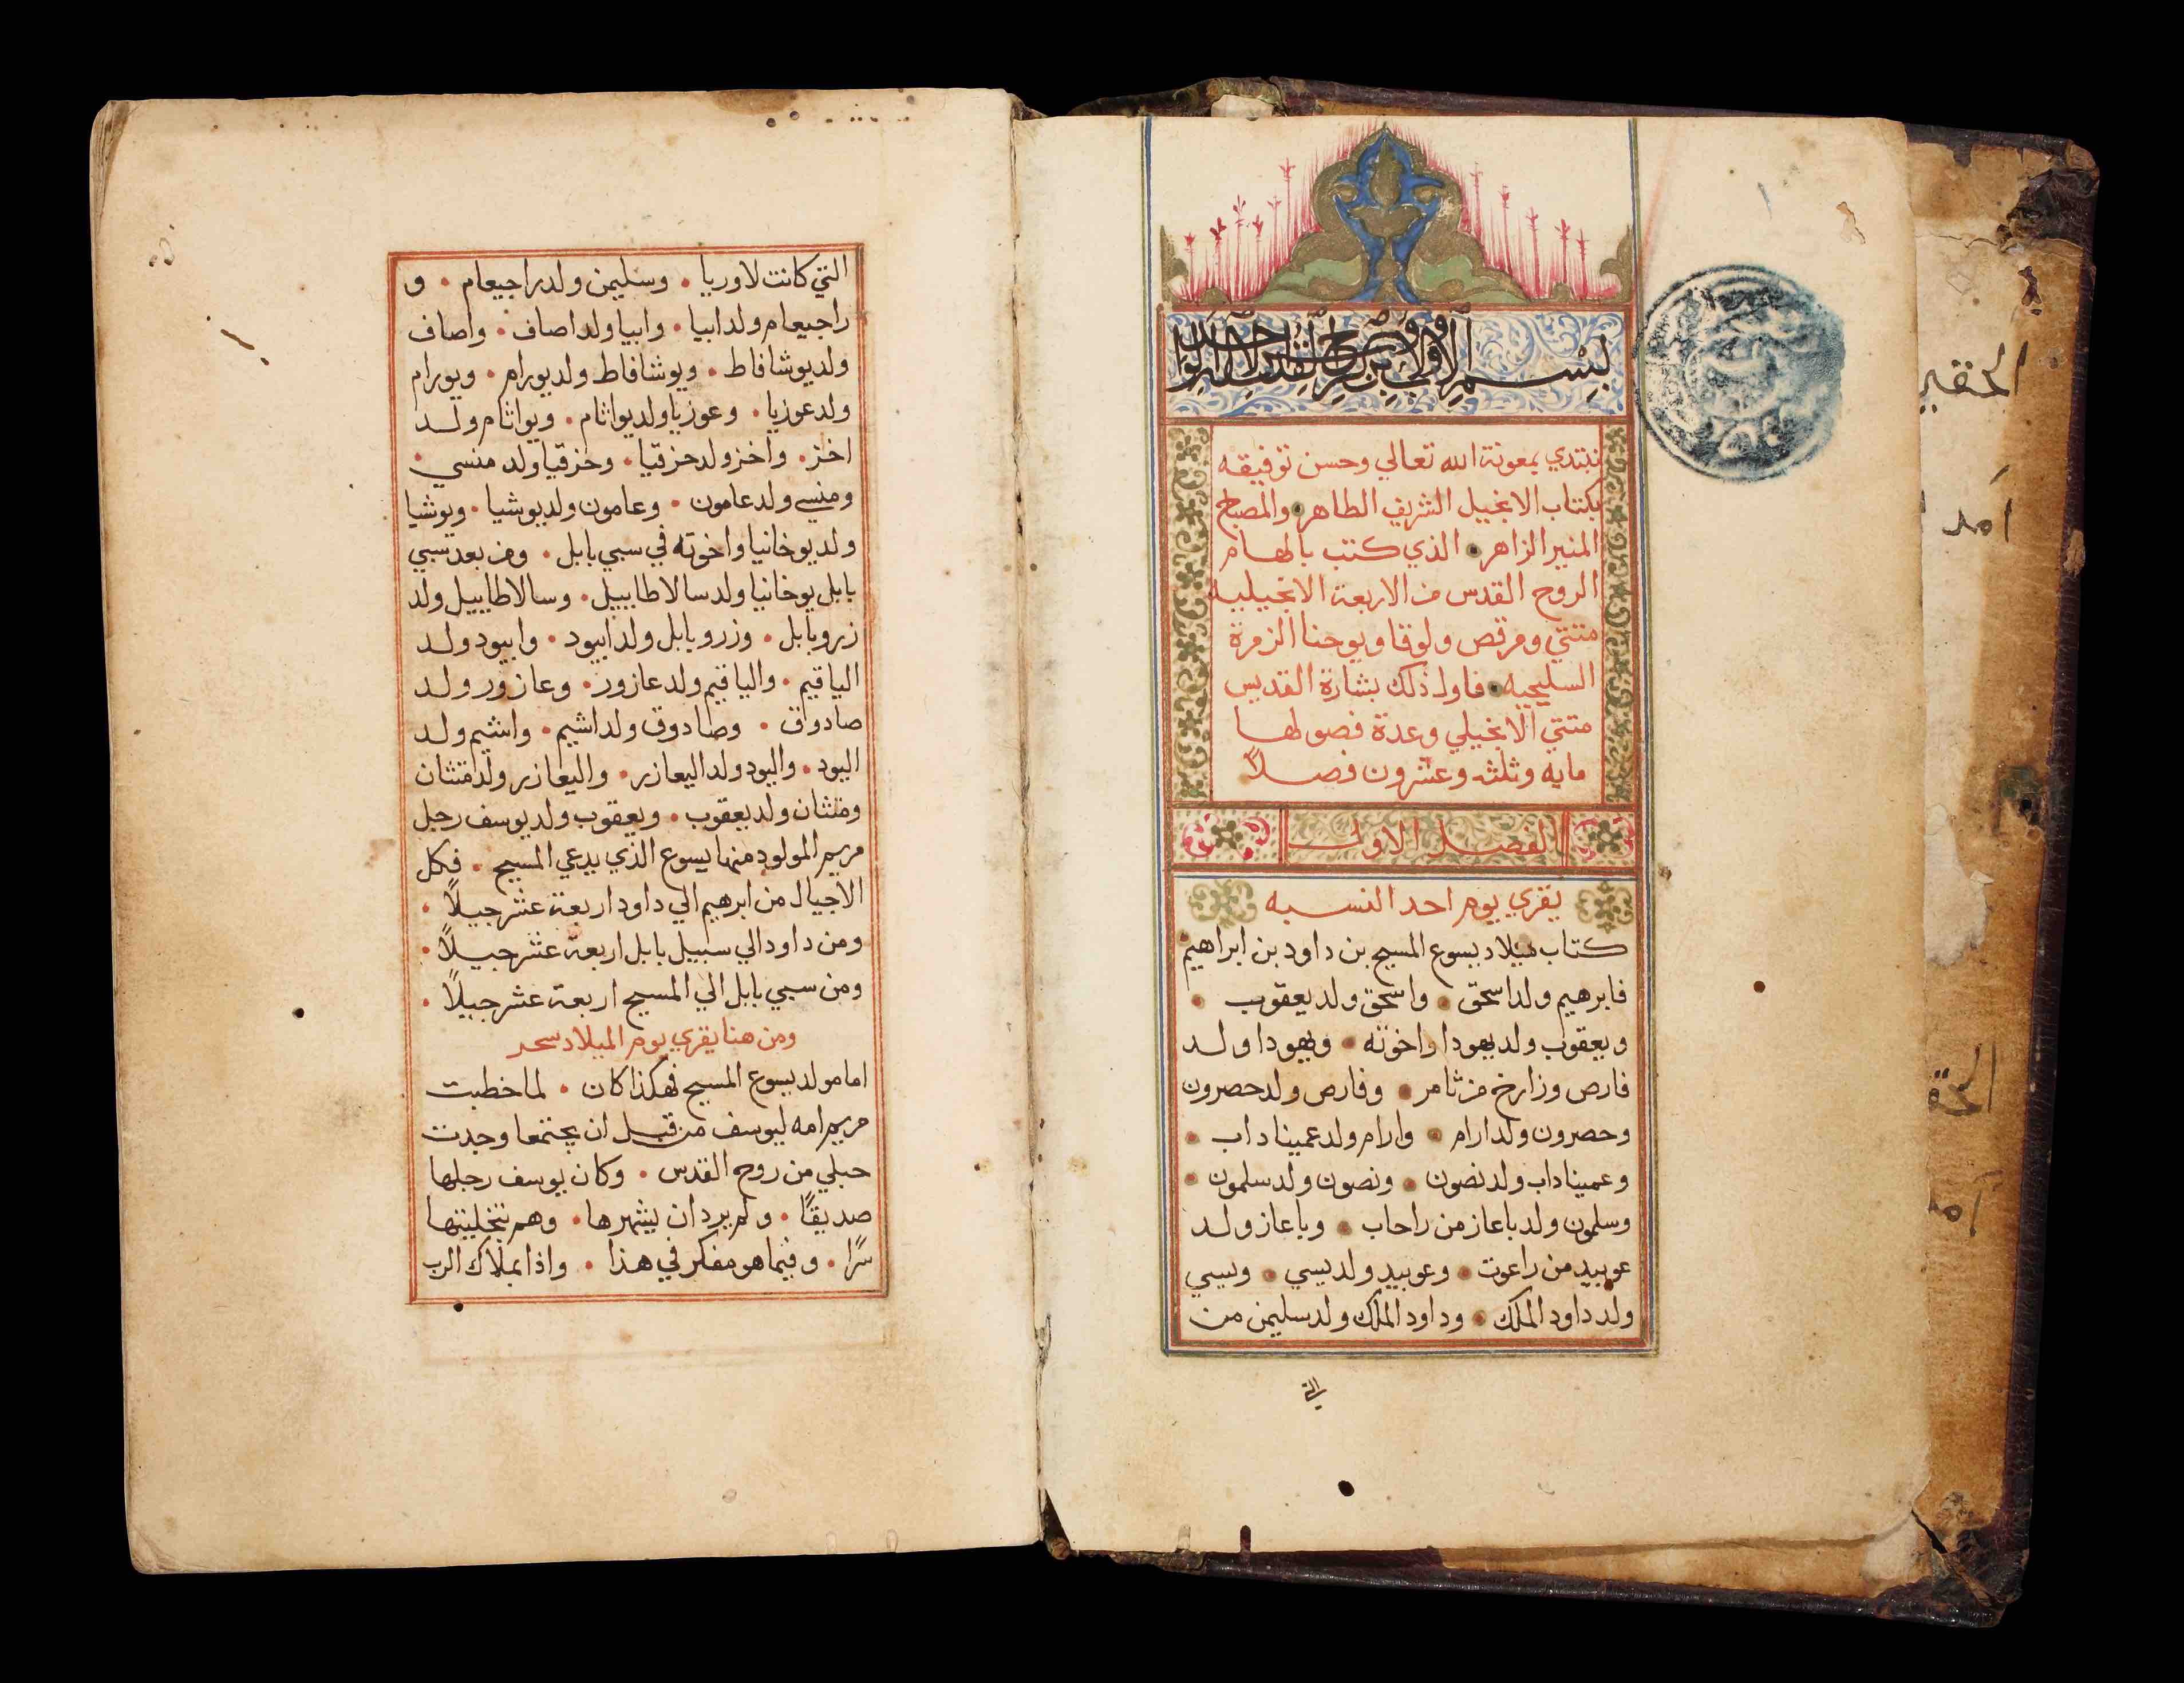 بسم الاب والابن والروح القدس الاله الواحد
نبتدي بمعونة الله تعالي وحسن توفيقه
بكتاب الانجيل الشريف الطاهر والمصباح
المنير الزاهر الذي كتب بالهام
الروح القدس من الاربعة الانجيليه
متتي ومرقص ولوقا ويوحنا الزمرة
السليحيه فاول ذلك بشارة القديس
متتي الانجيلي وعدة فصولها
مايه وثلثه وعشرون فصلاً
الفصل الاول
يقري يوم احد النسبه
كتاب ميلاد يسوع المسيح بن داود بن ابراهيم
فابرهيم ولد اسحق واسحق ولد يعقوب
ويعقوب ولد يهودا واخوته ويهودا ولد
فارص وزارخ من ثامر وفارص ولد حصرون
وحصرون ولد ارام وارام ولد عميناداب
وعميناداب ولد نصون ونصون ولد سلمون
وسلمون ولد باعاز من راحاب وباعاز ولد
عوبيد من راعوت وعوبيد ولد يسي ويسي
ولد داود الملك وداود الملك ولد سليمن من
التي
التي كانت لاوريا وسليمن ولد راجيعام و
راجيعام ولد ابيا وابيا ولد اصاف واصاف
ولد يوشافاط ويوشافاط ولد يورام ويورام
ولد عوزيا وعوزيا ولد يواثام ويواثام ولد
اخز واخز ولد حزقيا وحزقيا ولد منسي
ومنسي ولد عامون وعامون ولد يوشيا ويوشيا
ولد يوخانيا واخوته في سبي بابل ومن بعد سبي
بابل يوخانيا ولد سالاطاييل وسالاطاييل ولد
زروبابل وزروبابل ولد ابيود وابيود ولد
الياقيم والياقيم ولد عازور وعازور ولد
صادوق وصادوق ولد اشيم واشيم ولد
اليود واليود ولد اليعازر واليعازر ولد متثان
ومتثان ولد يعقوب ويعقوب ولد يوسف رجل
مريم المولود منها يسوع الذي يدعي المسيح فكل
الاجيال من ابرهيم الي داود اربعة عشر جيلاً
ومن داود الي سبيل بابل اربعة عشر جيلاً
ومن سبي بابل الي المسيح اربعة عشر جيلاً
ومن هنا يقري يوم الميلاد سحر
اما مولد يسوع المسيح فهكذا كان لما خطبت
مريم امه ليوسف من قبل ان يجتمعا وجدت
حبلي من روح القدس وكان يوسف رجلها
صديقًا ولم يرد ان يشهرها وهم بتخليتها
سرًا وفيما هو مفكر في هذا واذا بملاك الرب